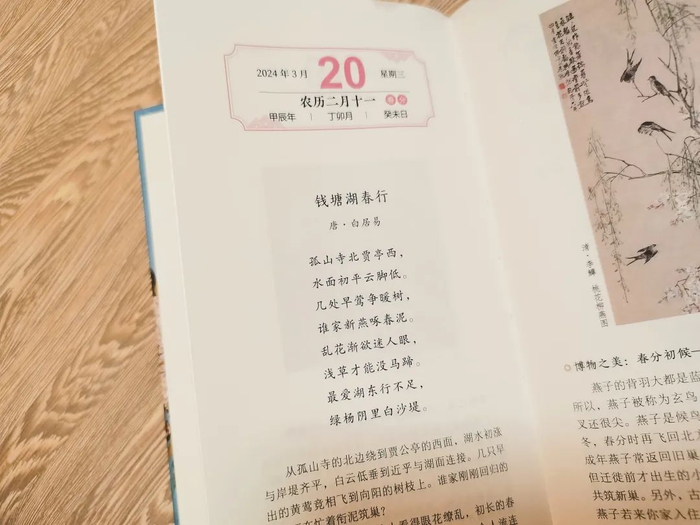 2024年3月 20 星期三
农历二月十一 春分
甲辰年 | 丁卯月 | 癸未日
钱塘湖春行
唐·白居易
孤山寺北贾亭西，
水面初平云脚低。
几处早莺争暖树，
谁家新燕啄春泥。
乱花渐欲迷人眼，
浅草才能没马蹄。
最爱湖东行不足，
绿杨阴里白沙堤。
从孤山寺的北边绕到贾公亭的西面，湖水初涨
与岸堤齐平，白云低垂到近乎与湖面连接。几只早
出的黄莺竞相飞到向阳的树枝上。谁家刚刚回归的
在忙着衔泥筑巢？
看得眼花缭乱，初长的春
清·李鱓 桃花柳燕图
博物之美：春分初候一
燕子的背羽大都是蓝
所以，燕子被称为玄鸟
叉还很尖。燕子是候鸟
冬，春分时再飞回北方
成年燕子常返回旧巢
但迁徙前才出生的
共筑新巢。另外，古
燕子若来你家入住